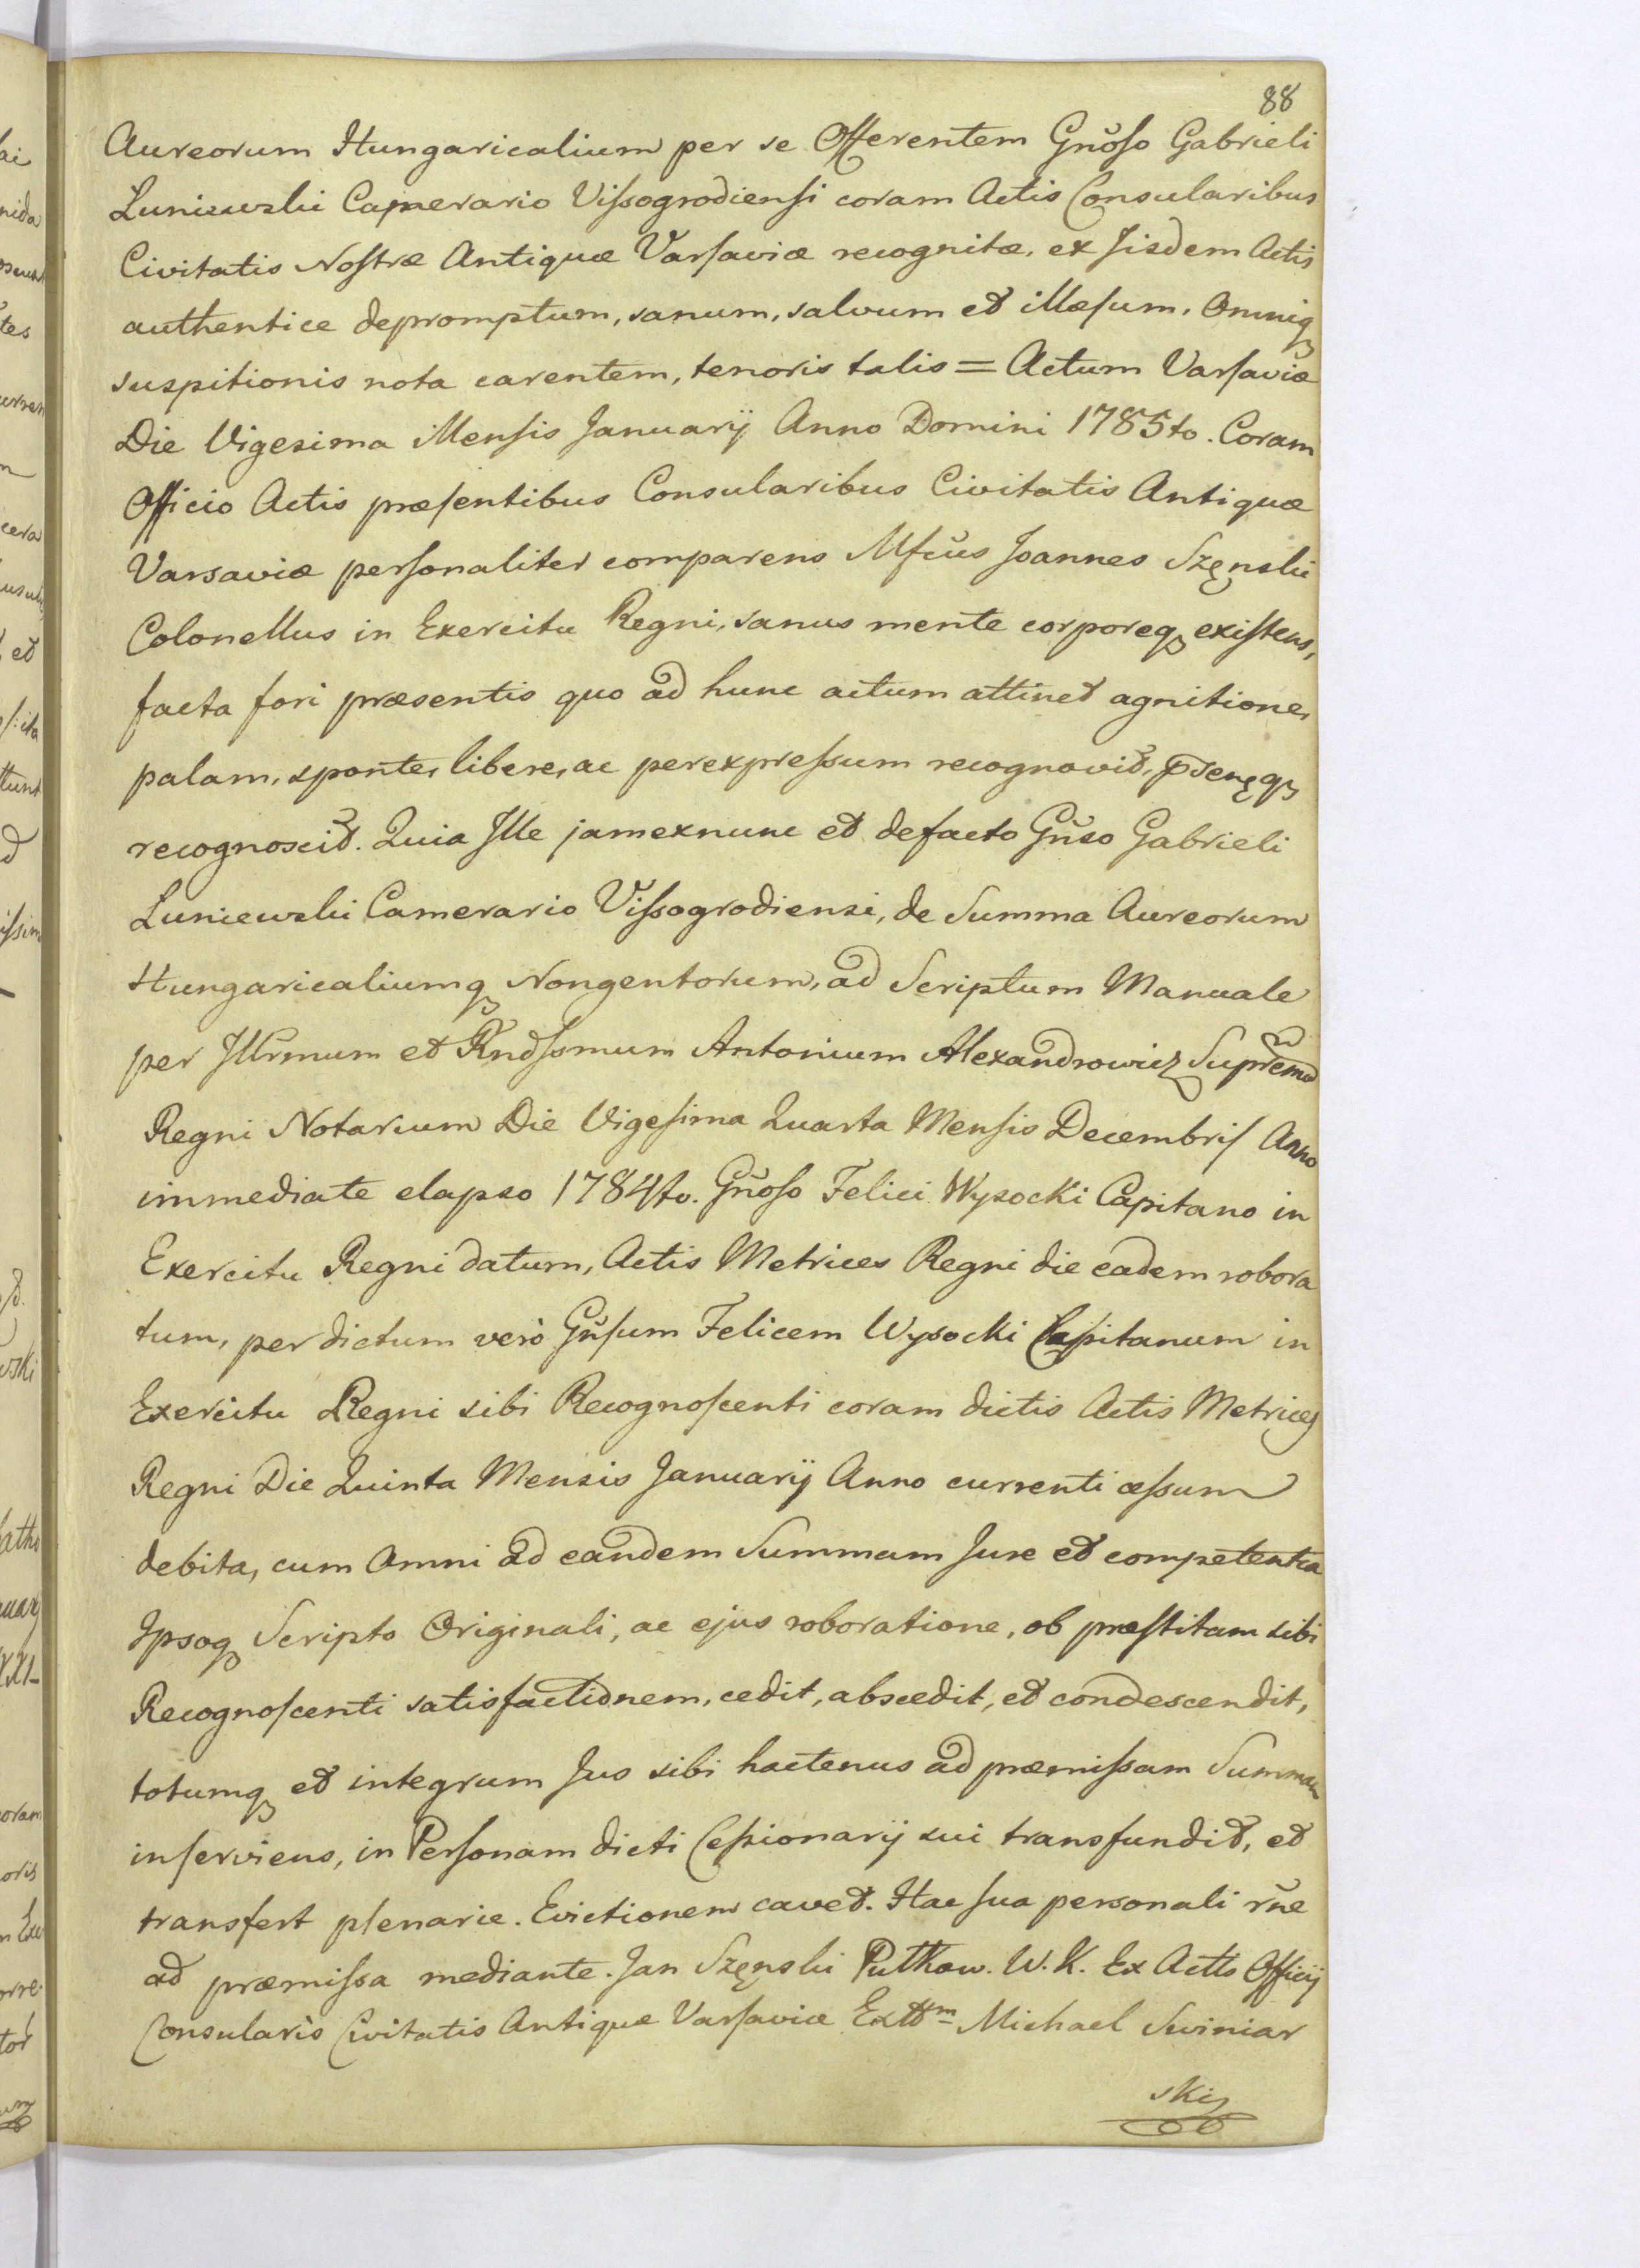 88
Aureorum Hungaricalium per se Offerentem Gnoso Gabrieli
Luniewski Camerario Vissogrodiensi coram Actis Consularibus
Civitatis Nostræ Antiquæ Varsaviæ recognitæ, ex Jisdem Actis
authentice depromptum, sanum, salvum et illæsum, Omniq
suspitionis nota carentem, tenoris talis = Actum Varsaviæ
Die Vigesima Mensis Januarij Anno Domini 1785to. Coram
Officio Actis præsentibus Consularibus Civitatis Antiquæ
Varsaviæ personaliter comparens Mfcus Joannes Szęnski
Colonellus in Exercitu Regni, sanus mente corporeq existens,
facta fori præsentis quo ad hunc actum attinet agnitione,
palam, sponte, libere, ac perexpressum recognovit,
recognoscit. Quia Ille jamexnunc et defacto Gnso Gabrieli
Luniewski Camerario Vissogrodiensi, de Summa Aureorum
Hungaricaliumq Nongentorum, ad Scriptum Manuale
per Jllrmum et Rndssmum Antonium Alexandrowicz Supremū
Regni Notarium Die Vigesima Quarta Mensis Decembris Anno
immediate elapso 1784to. Gnoso Felici Wysocki Capitano in
Exercitu Regni datum, Actis Metrices Regni die eadem robora
tum, per dictum verò Gnsum Felicem Wysocki Capitanum in
Exercitu Regni sibi Recognoscenti coram dictis Actis Metrices
Regni Die Quinta Mensis Januarij Anno currenti cessum
debita, cum Omni ad eandem Summam Jure et competentia
Ipsoq Scripto Originali, ac ejus roboratione, ob præstitam sibi
Recognoscenti satisfactionem, cedit, abscedit, et condescendit,
totumq et integrum Jus sibi hactenus ad præmissam Summam
inserviens, in Personam dicti Cessionarij sui transfundit, et
transfert plenarie. Evictionem cavet. Hac sua personali rñe
ad præmissa mediante. Jan Szęnski Putkow. W. K. Ex Actis Officij
Consularis Civitatis Antiquæ Varsaviæ Extt͞m Michael Swiniar
ski